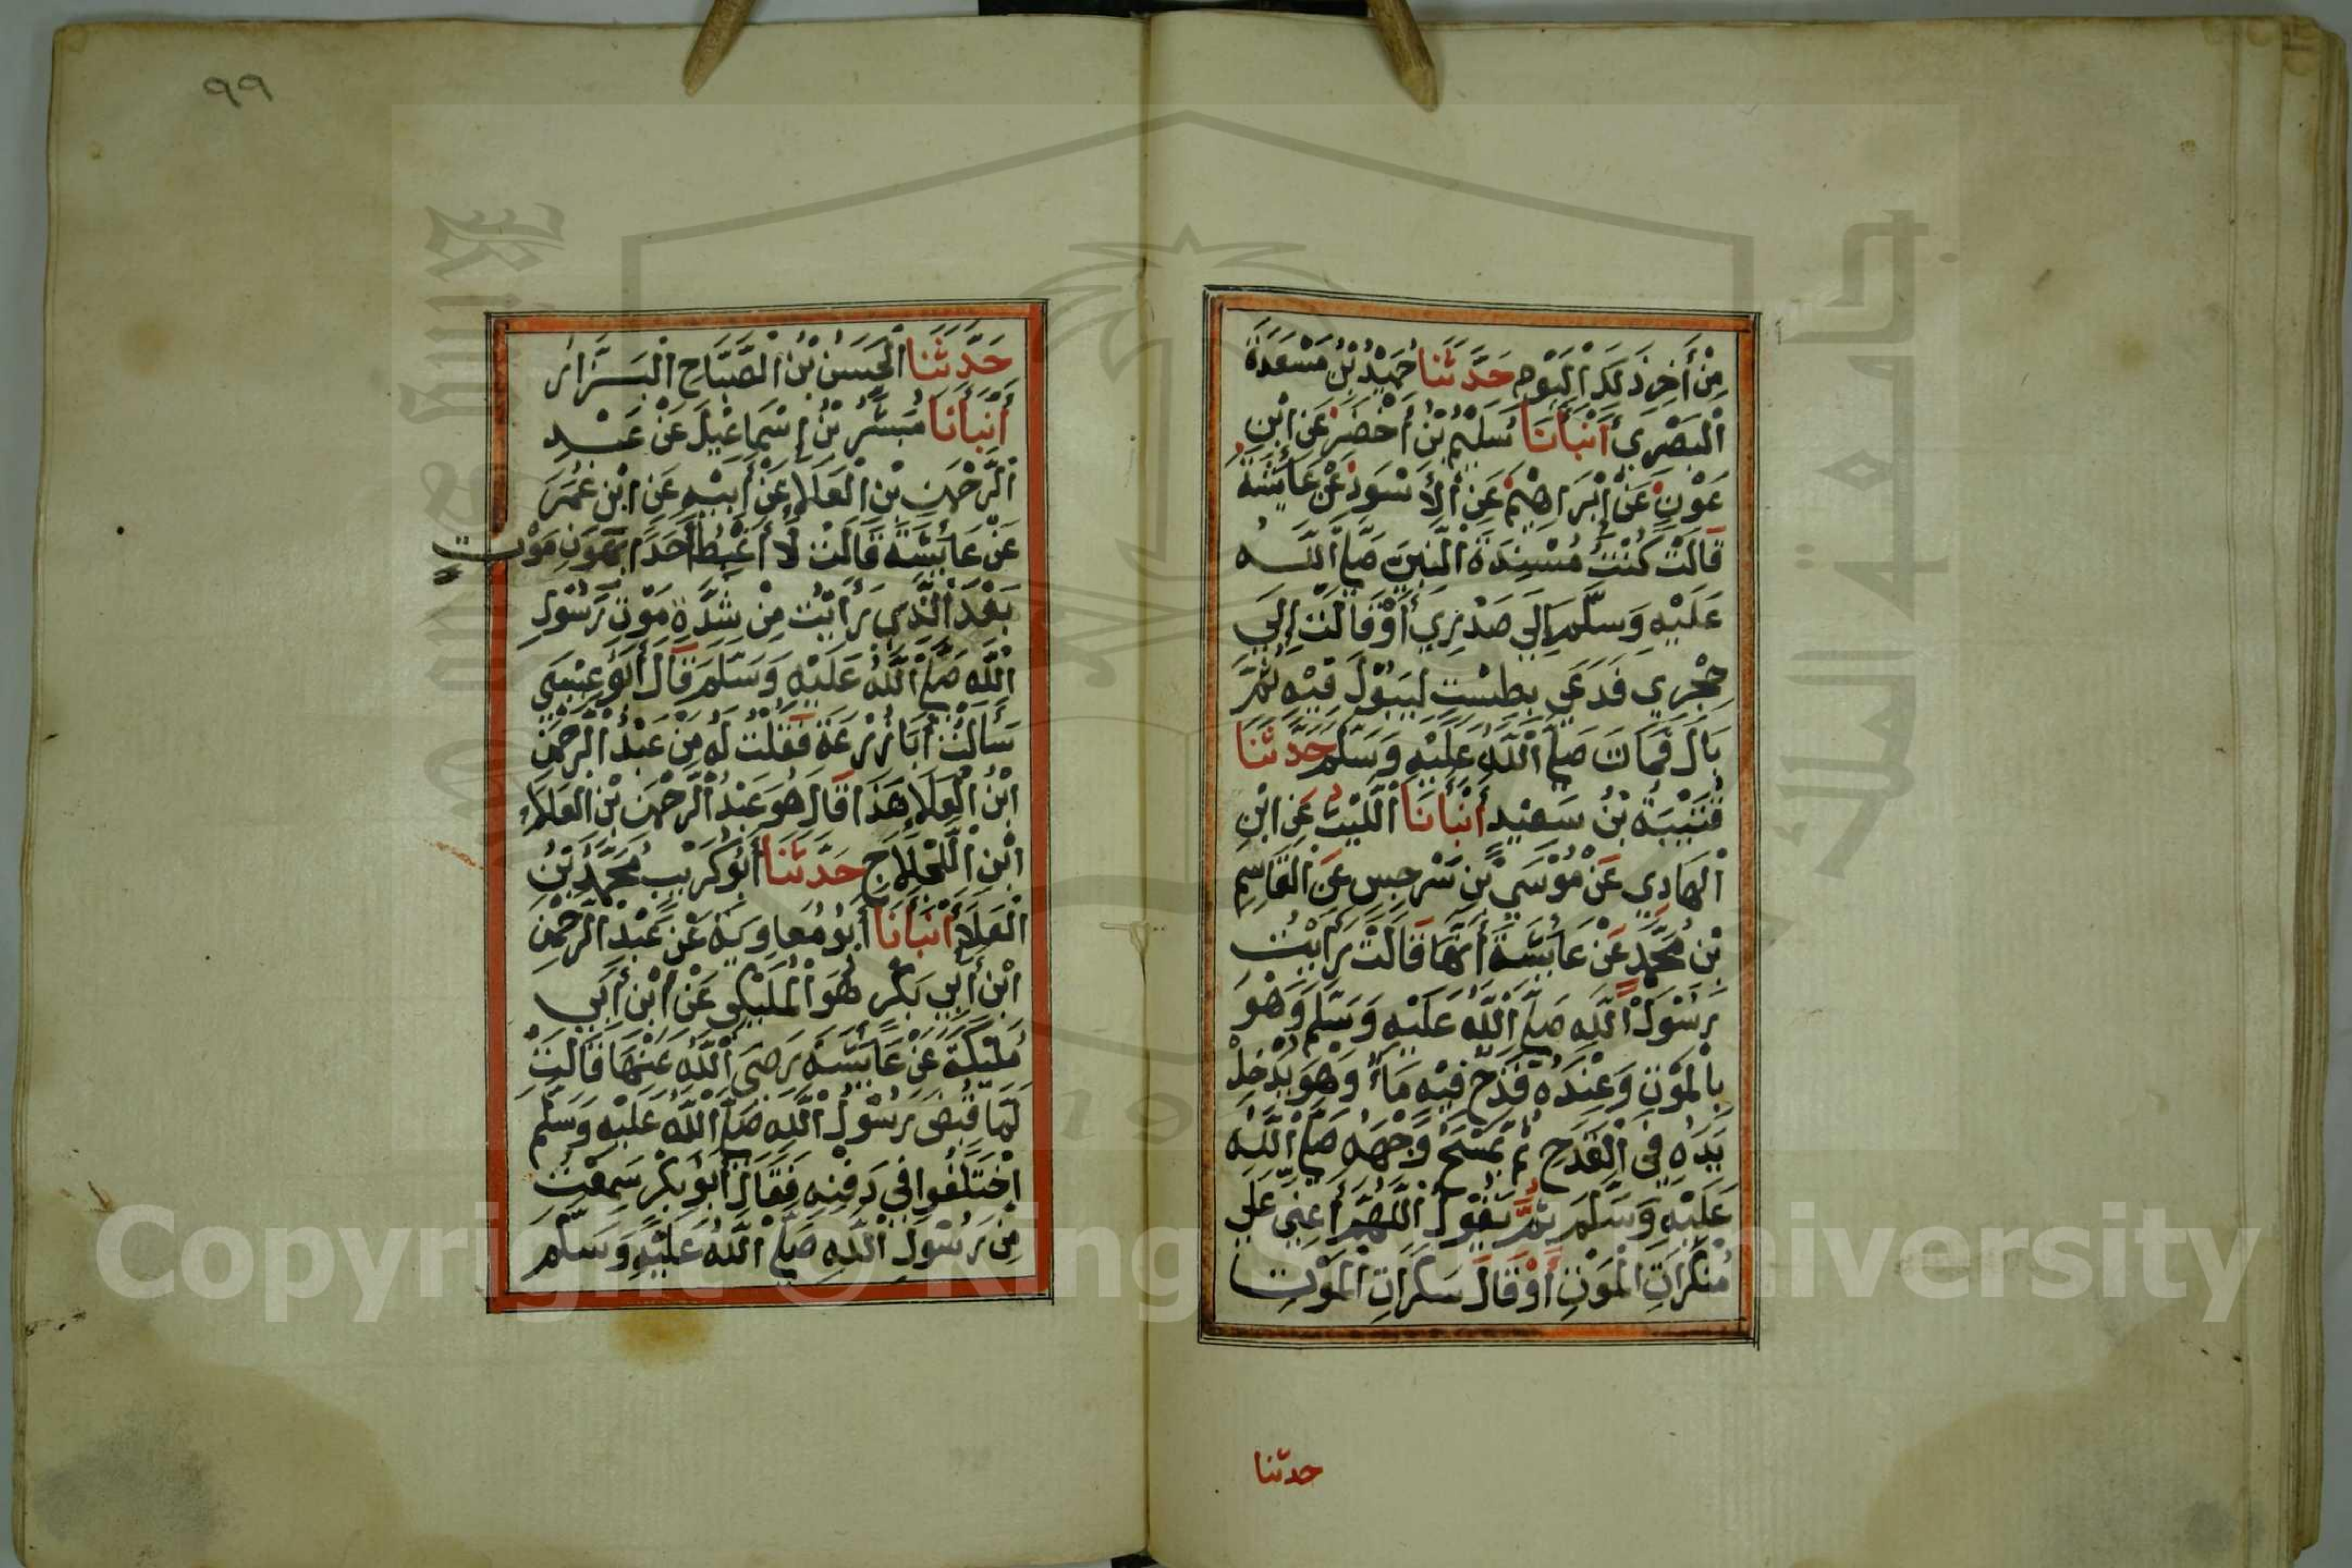 مِنْ أَخِرِ ذَلِكَ الْيَوْمِ حَدَّثَنَا حُمَيْدُ بْنُ مَسْعَدَةَ
الْبَصْرِيُّ أَنْبَأَنَا سُلَيْمُ بْنُ أَخْضَرَ عَنِ ابْنِ
عَوْنٍ عَنْ إِبْرَاهِيْمَ عَنِ الْأَسْوَدِ عَنْ عَائِشَةَ
قَالَتْ كُنْتُ مُسْنِدَةَ النَّبِيِّ صَلَّى اللّٰهُ
عَلَيْهِ وَسَلَّمَ إِلَى صَدْرِي أَوْ قَالَتْ إِلَى
حِجْرِي فَدَعَى بِطِسْتٍ لِيَبُوْلَ فِيْهِ ثُمَّ
بَالَ فَمَاتَ صَلَّى اللّٰهُ عَلَيْهِ وَسَلَّمَ حَدَّثَنَا
قُتَيْبَةُ بْنُ سَعِيْدٍ أَنْبَأَنَا اللَّيْثُ عَنِ ابْنِ
الْهَادِي عَنْ مُوْسَى بْنِ سَرْجِسَ عَنِ الْقَاسِمِ
بْنِ مُحَمَّدٍ عَنْ عَائِشَةَ أَنَّهَا قَالَتْ رَأَيْتُ
رَسُوْلَ اللّٰهِ صَلَّى اللّٰهُ عَلَيْهِ وَسَلَّمَ وَهُوَ
بِالْمَوْتِ وَعِنْدَهُ قَدَحٌ فِيْهِ مَاءٌ وَهُوَ يُدْخِلُ
يَدَهُ فِي الْقَدَحِ ثُمَّ يَمْسَحُ وَجْهَهُ صَلَّى اللّٰهُ
عَلَيْهِ وَسَلَّمَ ثُمَّ يَقُوْلُ اللّٰهُمَّ أَعِنِّي عَلَى
مُنْكَرَاتِ الْمَوْتِ أَوْ قَالَ سَكَرَاتِ الْمَوْتِ
حدثنا
٩٩
حَدَّثَنَا الْحَسَنُ بْنُ الصَّبَّاحِ الْبَزَّارُ
أَنْبَأَنَا مُبَشِّرُ بْنُ إِسْمَاعِيْلَ عَنْ عَبْدِ
الرَّحْمٰنِ بْنِ الْعَلَاءِ عَنْ أَبِيْهِ عَنِ ابْنِ عُمَرَ
عَنْ عَائِشَةَ قَالَتْ لَا أَغْبِطُ أَحَدًا بِهَوْنِ مَوْتٍ
بَعْدَ الَّذِي رَأَيْتُ مِنْ شِدَّةِ مَوْتِ رَسُوْلِ
اللّٰهِ صَلَّى اللّٰهُ عَلَيْهِ وَسَلَّمَ قَالَ أَبُوْ عِيْسَى
سَأَلْتُ أَبَا زُرْعَةَ فَقُلْتُ لَهُ مَنْ عَبْدُ الرَّحْمٰنِ
ابْنُ الْعَلَاءِ هَذَا قَالَ هُوَ عَبْدُ الرَّحْمٰنِ بْنُ الْعَلَاءِ
ابْنِ اللَّجْلَاجِ حَدَّثَنَا أَبُوْ كُرَيْبٍ مُحَمَّدُ بْنُ
الْعَلَاءِ أَنْبَأَنَا أَبُوْ مُعَاوِيَةَ عَنْ عَبْدِ الرَّحْمٰنِ
ابْنِ أَبِي بَكْرٍ هُوَ الْمُلَيْكِي عَنْ ابْنِ أَبِي
مُلَيْكَةَ عَنْ عَائِشَةَ رَضِيَ اللّٰهُ عَنْهَا قَالَتْ
لَمَّا قُبِضَ رَسُوْلُ اللّٰهِ صَلَّى اللّٰهُ عَلَيْهِ وَسَلَّمَ
اخْتَلَفُوا فِي دَفْنِهِ فَقَالَ أَبُوْ بَكْرٍ سَمِعْتُ
مِنْ رَسُوْلِ اللّٰهِ صَلَّى اللّٰهُ عَلَيْهِ وَسَلَّمَ
Copyright © King Saud University